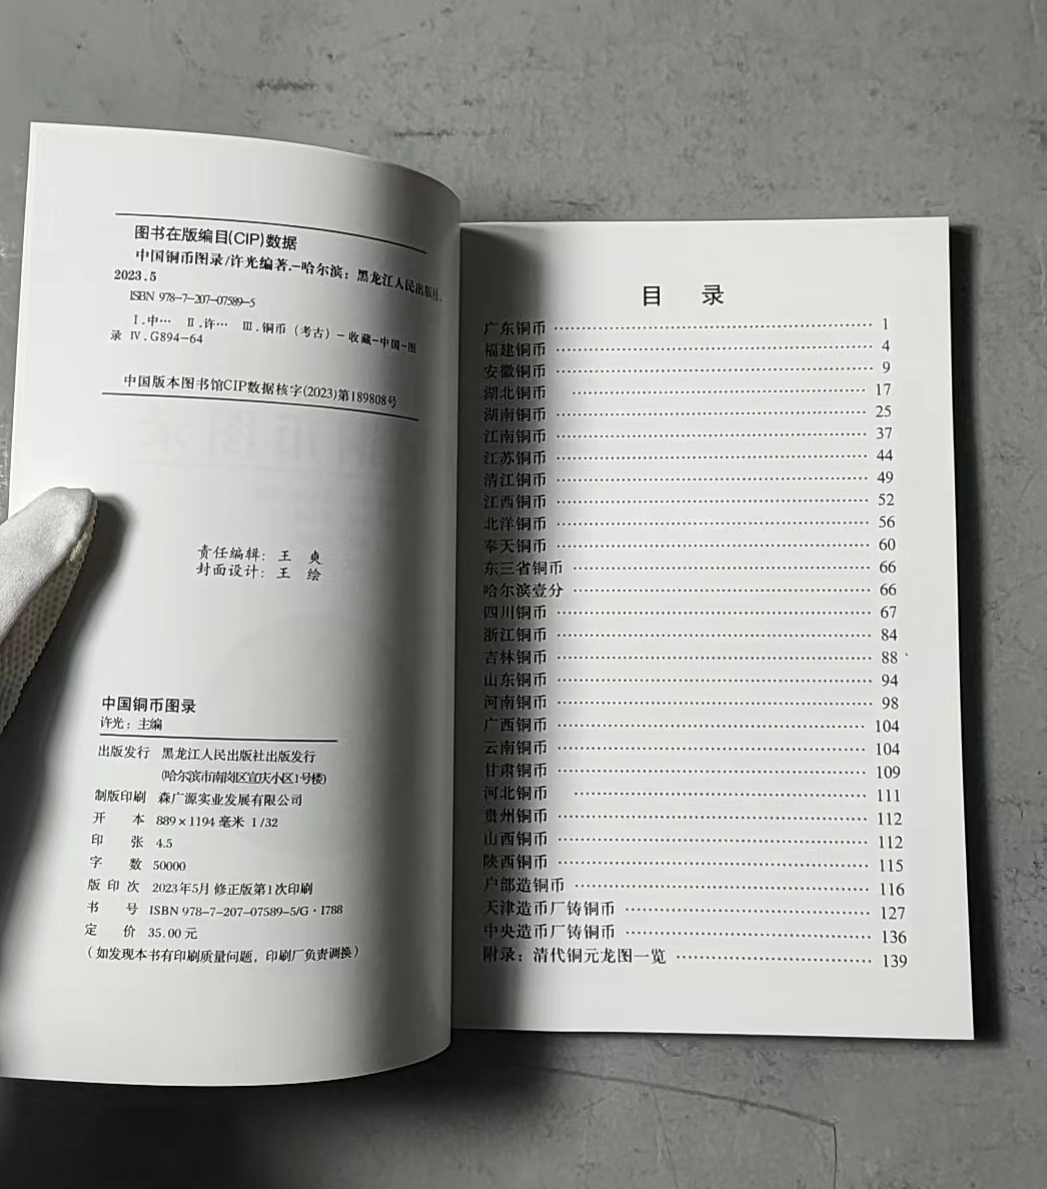 图书在版编目(CIP)数据
中国铜币图录/许光编著.－哈尔滨：黑龙江人民出版社，
2023.5
ISBN 978-7-207-07589-5
Ⅰ.中… Ⅱ.许… Ⅲ.铜币（考古）－收藏－中国－图
录 Ⅳ.G894-64
中国版本图书馆CIP数据核字(2023)第189808号
责任编辑：王 爽
封面设计：王 绘
中国铜币图录
许光：主编
出版发行 黑龙江人民出版社出版发行
(哈尔滨市南岗区宣庆小区1号楼)
制版印刷 森广源实业发展有限公司
开 本 889×1194 毫米 1/32
印 张 4.5
字 数 50000
版 印 次 2023年5月 修正版第1次印刷
书 号 ISBN 978-7-207-07589-5/G·1788
定 价 35.00 元
（如发现本书有印刷质量问题，印刷厂负责调换）
目 录
广东铜币 …… 1
福建铜币 …… 4
安徽铜币 …… 9
湖北铜币 …… 17
湖南铜币 …… 25
江南铜币 …… 37
江苏铜币 …… 44
清江铜币 …… 49
江西铜币 …… 52
北洋铜币 …… 56
奉天铜币 …… 60
东三省铜币 …… 66
哈尔滨壹分 …… 66
四川铜币 …… 67
浙江铜币 …… 84
吉林铜币 …… 88
山东铜币 …… 94
河南铜币 …… 98
广西铜币 …… 104
云南铜币 …… 104
甘肃铜币 …… 109
河北铜币 …… 111
贵州铜币 …… 112
山西铜币 …… 112
陕西铜币 …… 115
户部造铜币 …… 116
天津造币厂铸铜币 …… 127
中央造币厂铸铜币 …… 136
附录：清代铜元龙图一览 …… 139